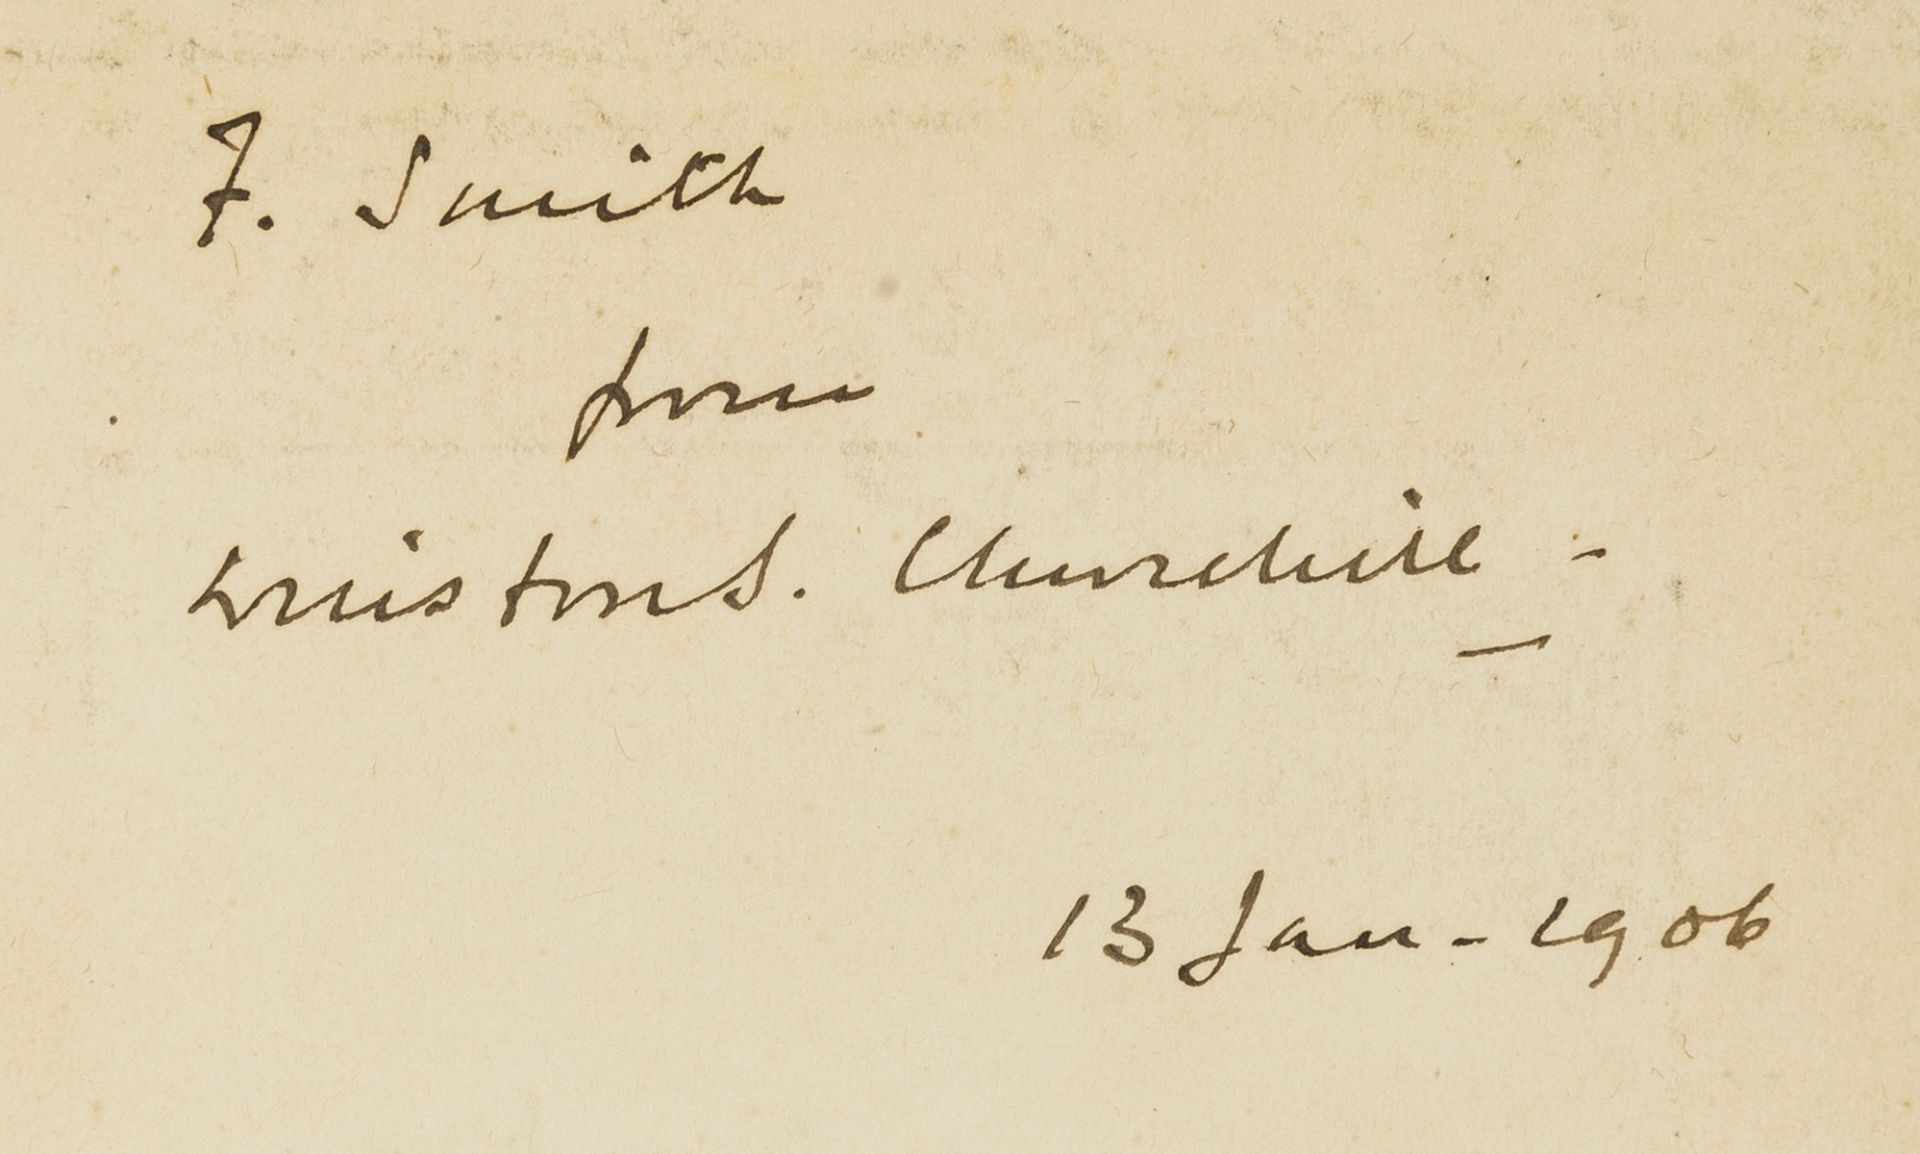 F. Smith
from
Winston S. Churchill -
13 Jan - 1906